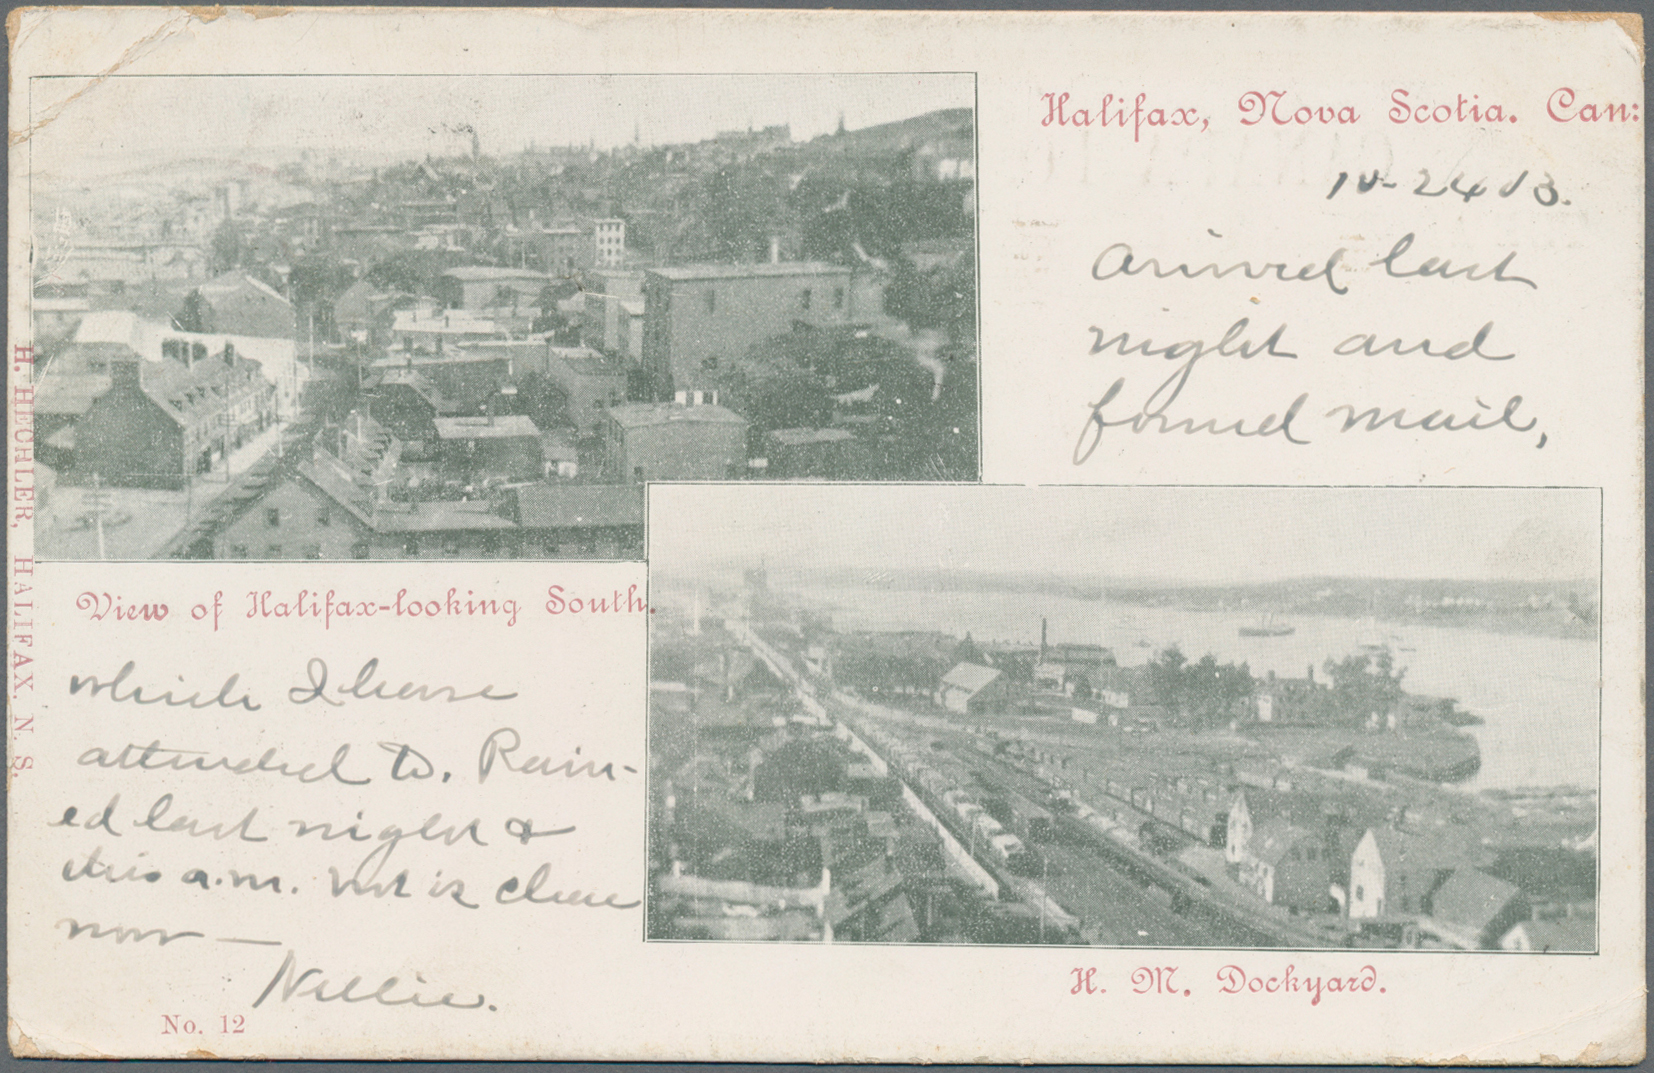 Halifax, Nova Scotia. Can:
10-24 03.
Arrived last
night and
found mail,
View of Halifax-looking South.
which I have
attended to. Rain-
ed last night &
this a.m. but is clear
now —
Nellie.
H. M. Dockyard.
No. 12
H. HECHLER, HALIFAX. N. S.